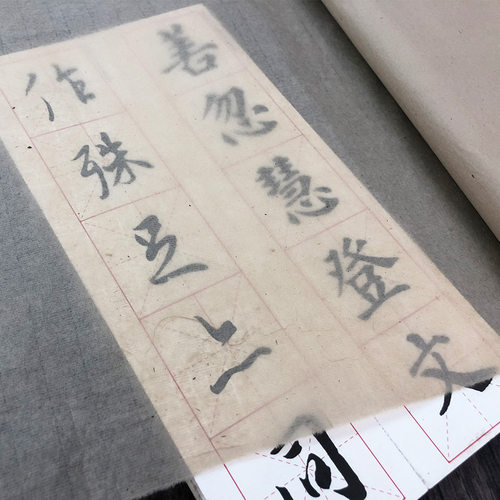 善忽慧登文
作殊足上